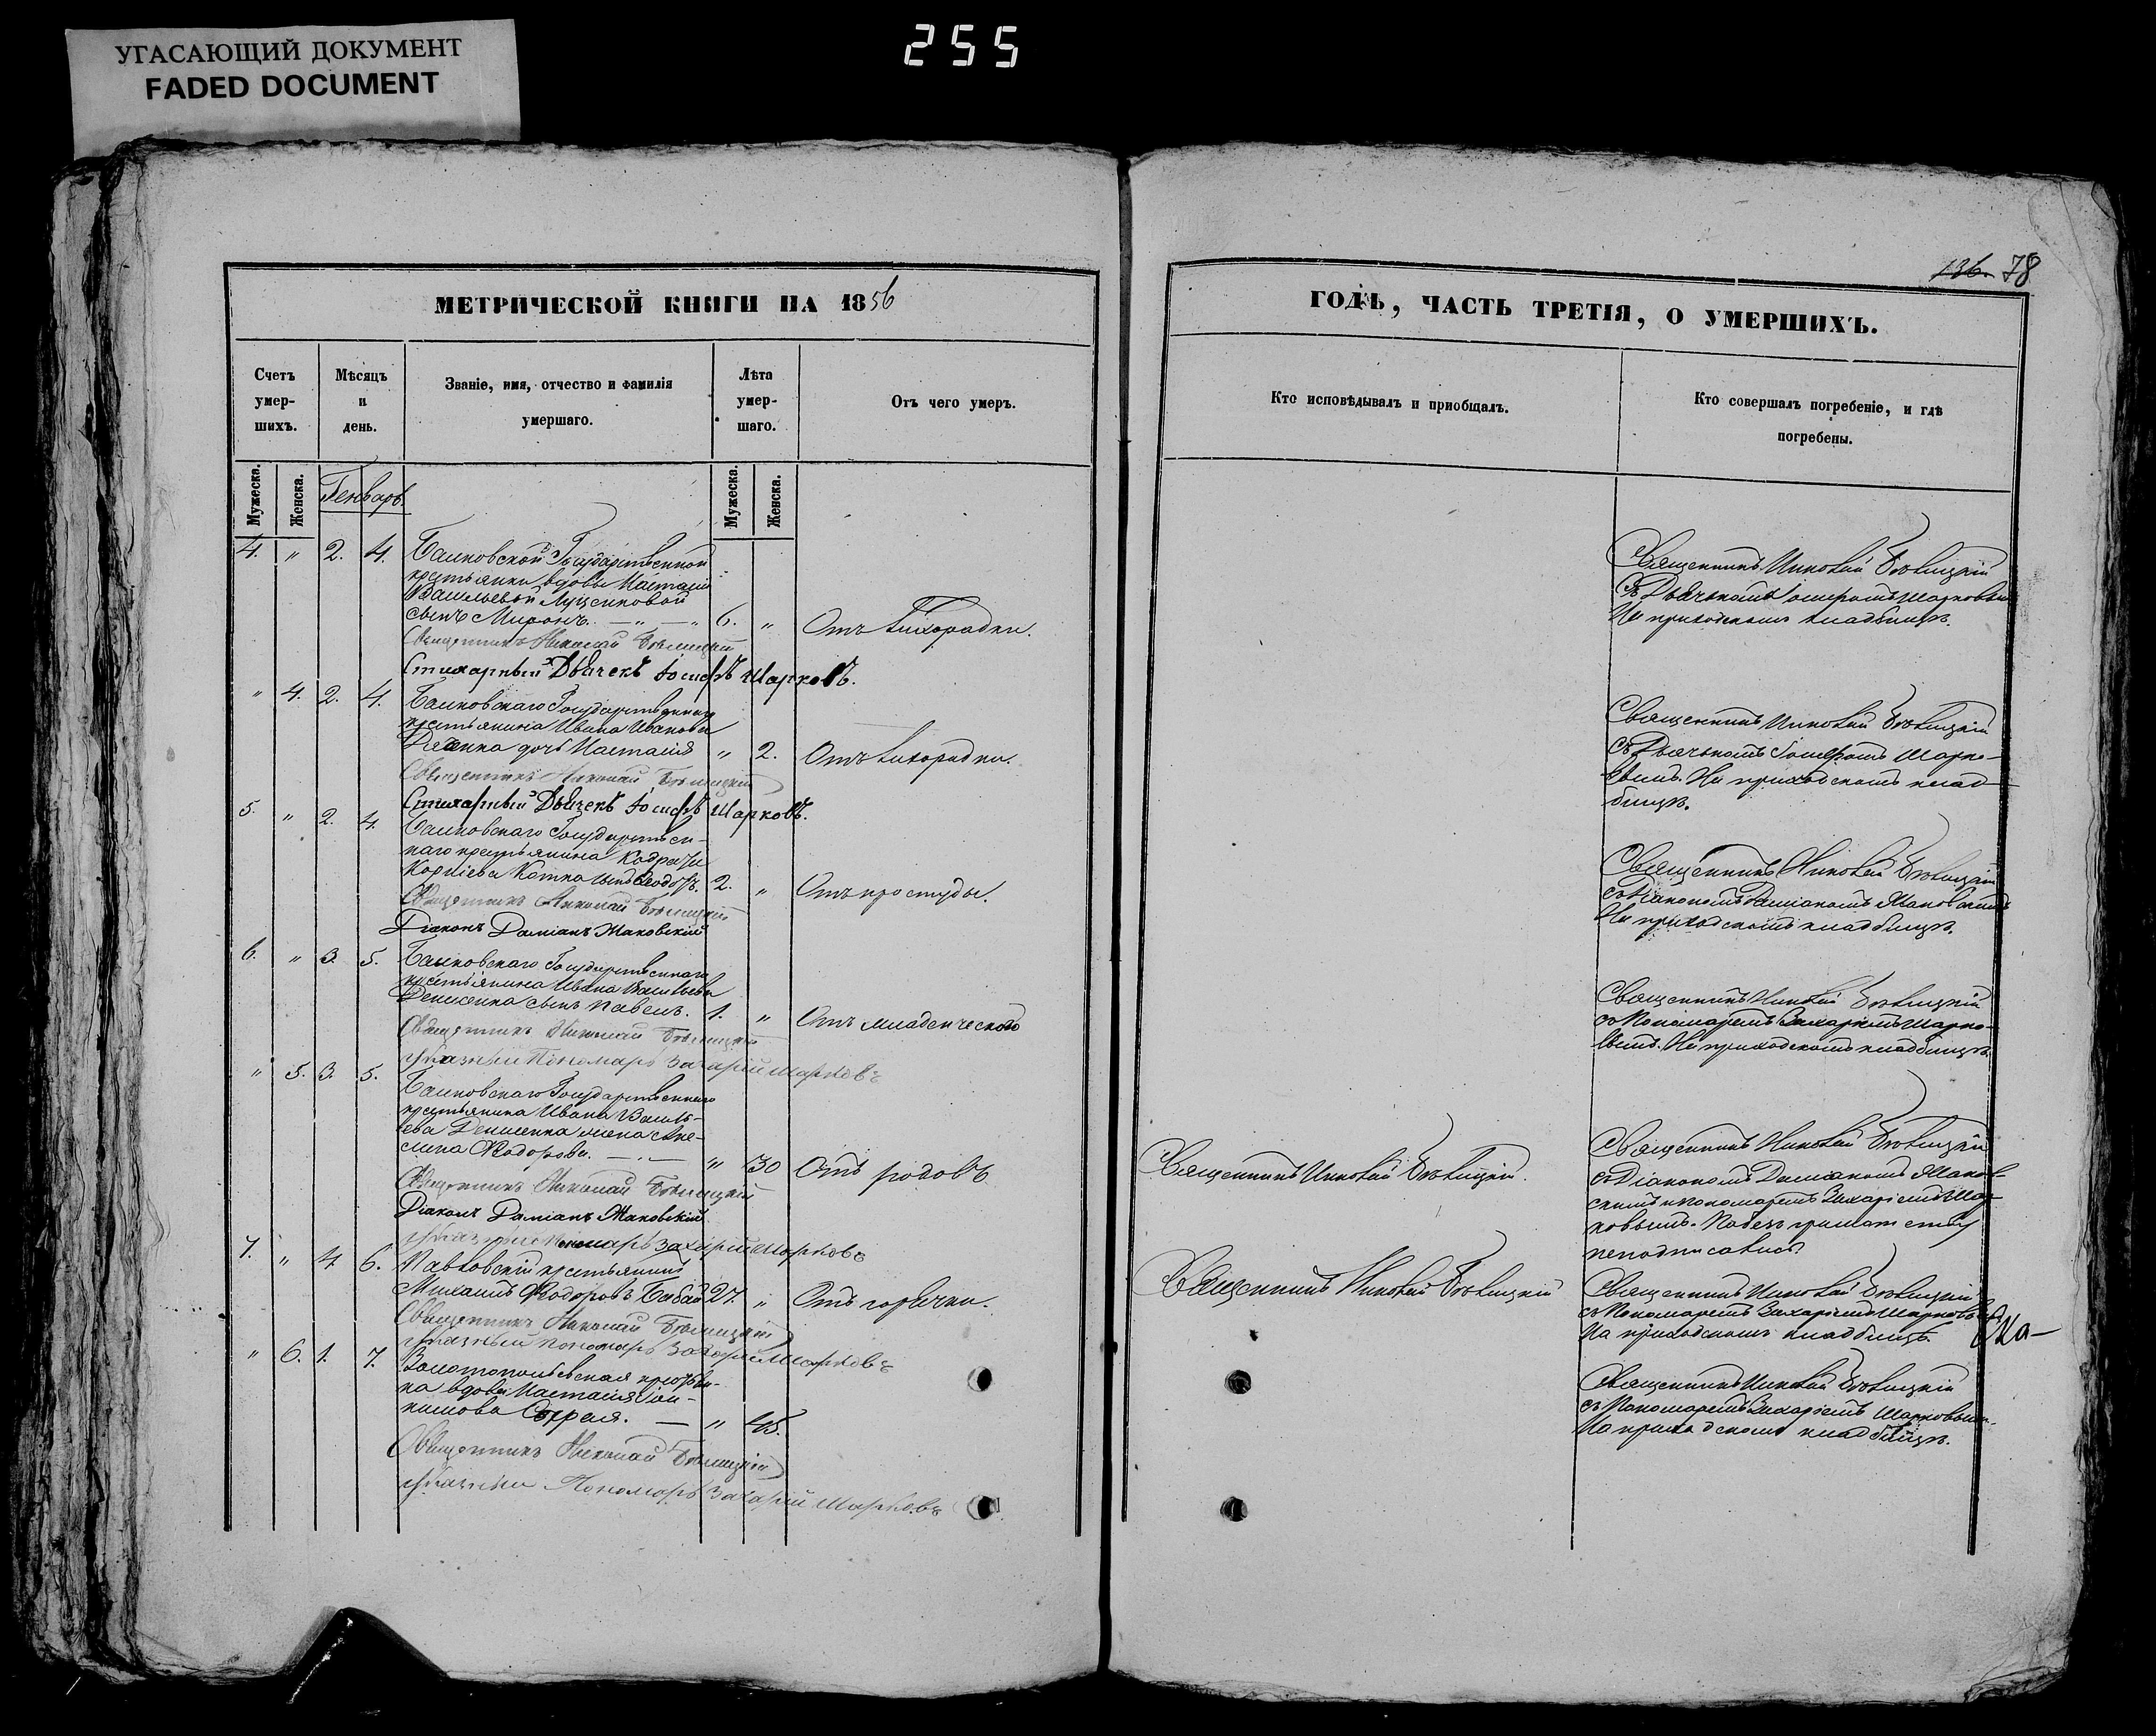 УГАСАЮЩИЙ ДОКУМЕНТ
FADED DOCUMENT
255
136. 78
МЕТРИЧЕСКОЙ КНИГИ НА 1856
Счетъ умер-шихъ.
Мѣсяцъ и день.
Званіе, имя, отчество и фамилія умершаго.
Лѣта умер-шаго.
Отъ чего умеръ.
Мужеска.
Женска.
Генварь
Мужеска.
Женска.
4. " 2. 4.
Государственной
крестьянки вдовы Настасіи
Васильевой
сынъ Миронъ. — " — " 6. " Отъ лихорадки.
Священникъ Николай
Стихарный Дьячекъ Іосифъ Шарковъ.
" 4. 2. 4.
Государственнаго
крестьянина Ивана Иванова
дочь Настасія " 2. Отъ лихорадки.
Священникъ Николай
Стихарный Дьячекъ Іосифъ Шарковъ.
5. " 2. 4.
Государствен-
наго крестьянина
Корніева сынъ Ѳеодоръ. 2. " Отъ простуды.
Священникъ Николай
Діаконъ Даміанъ Маковскій
6. " 3. 5.
Государственнаго
крестьянина Ивана Васильева
Денисенка сынъ Павелъ. 1. " Отъ младенческого
Священникъ Николай
Указный Пономарь Захарій Шарковъ
" 5. 3. 5.
Государственнаго
крестьянина Ивана Василь-
ева Денисенка жена
Ѳеодорова. — . — " 30 Отъ родовъ
Священникъ Николай
Діаконъ Даміанъ Маковскій
Указный Пономарь Захарій Шарковъ
7. " 4. 6.
крестьянинъ
Михаилъ Ѳеодоровъ Бабай 27. " Отъ горячки.
Священникъ Николай
Указный Пономарь Захарій Шарковъ
" 6. 1. 7.
вдова Настасія
— " 45.
Священникъ Николай
Указный Пономарь Захарій Шарковъ
ГОДЪ, ЧАСТЬ ТРЕТІЯ, О УМЕРШИХЪ.
Кто исповѣдывалъ и приобщалъ.
Кто совершалъ погребеніе, и гдѣ погребены.
Священникъ Николай
съ Дьячкомъ Іосифомъ Шарковымъ
На приходскомъ кладбищѣ.
Священникъ Николай
съ Дьячкомъ Іосифомъ Шарко-
вымъ. На приходскомъ клад-
бищѣ.
Священникъ Николай
съ Діакономъ Даміаномъ Маковскимъ
На приходскомъ кладбищѣ.
Священникъ Николай
съ Пономаремъ Захаріемъ Шарко-
вымъ. На приходскомъ кладбищѣ.
Священникъ Николай
Священникъ Николай
съ Діакономъ Даміаномъ Маков-
скимъ и пономаремъ Захаріемъ Шар-
ковымъ.
Священникъ Николай
Священникъ Николай
съ Пономаремъ Захаріемъ Шарковымъ
На приходскомъ кладбищѣ.
Священникъ Николай
съ Пономаремъ Захаріемъ Шарковымъ.
На приходскомъ кладбищѣ.